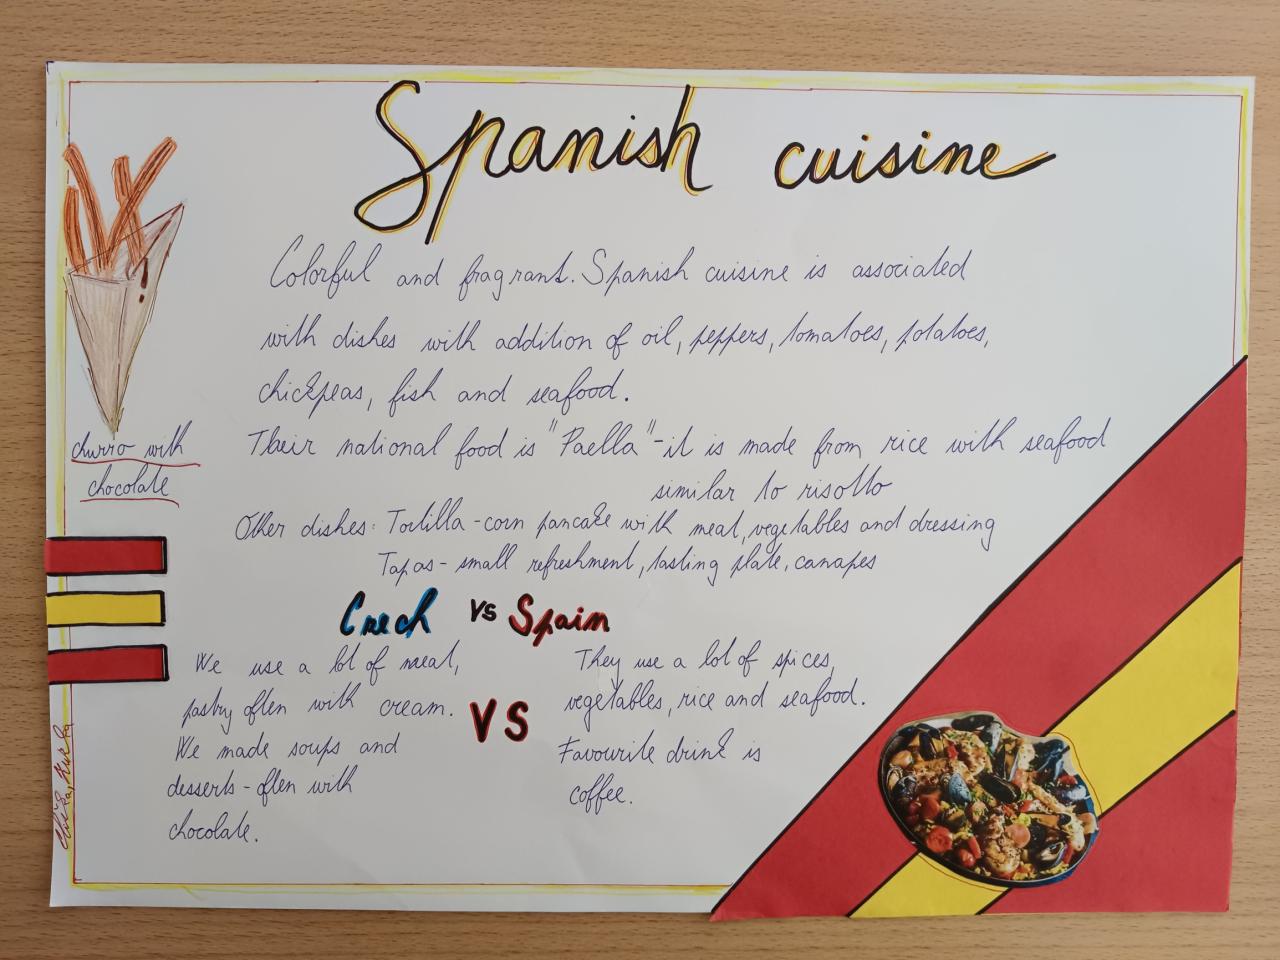 Spanish cuisine
Colorful and fragrant. Spanish cuisine is associated
with dishes with addition of oil, peppers, tomatoes, potatoes,
chickpeas, fish and seafood.
Their national food is "Paella"-it is made from rice with seafood
similar to risotto
Other dishes: Tortilla - corn pancake with meat, vegetables and dressing
Tapas - small refreshment, tasting plate, canapes
churro with
chocolate
Czech vs Spain
We use a lot of meat,
pastry often with cream.
We made soups and
desserts - often with
chocolate.
VS
They use a lot of spices,
vegetables, rice and seafood.
Favourite drink is
coffee.